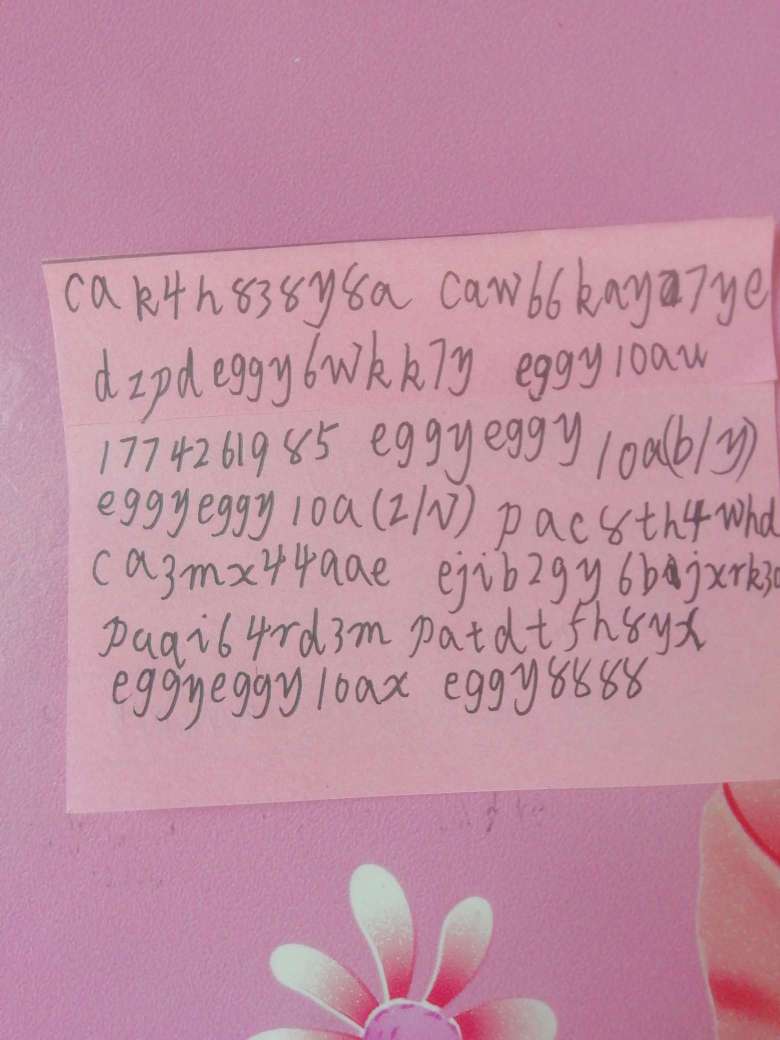 cak4h838y8a caw66kaya7ye
dzpdeggy6wkk7y eggy10aw
1774261985 eggyeggy10a(b/y)
eggyeggy10a(z/v) pac8th4whd
ca3mx44aae
paqi64rd3m patdtfh8yx
eggyeggy10ax eggy8888